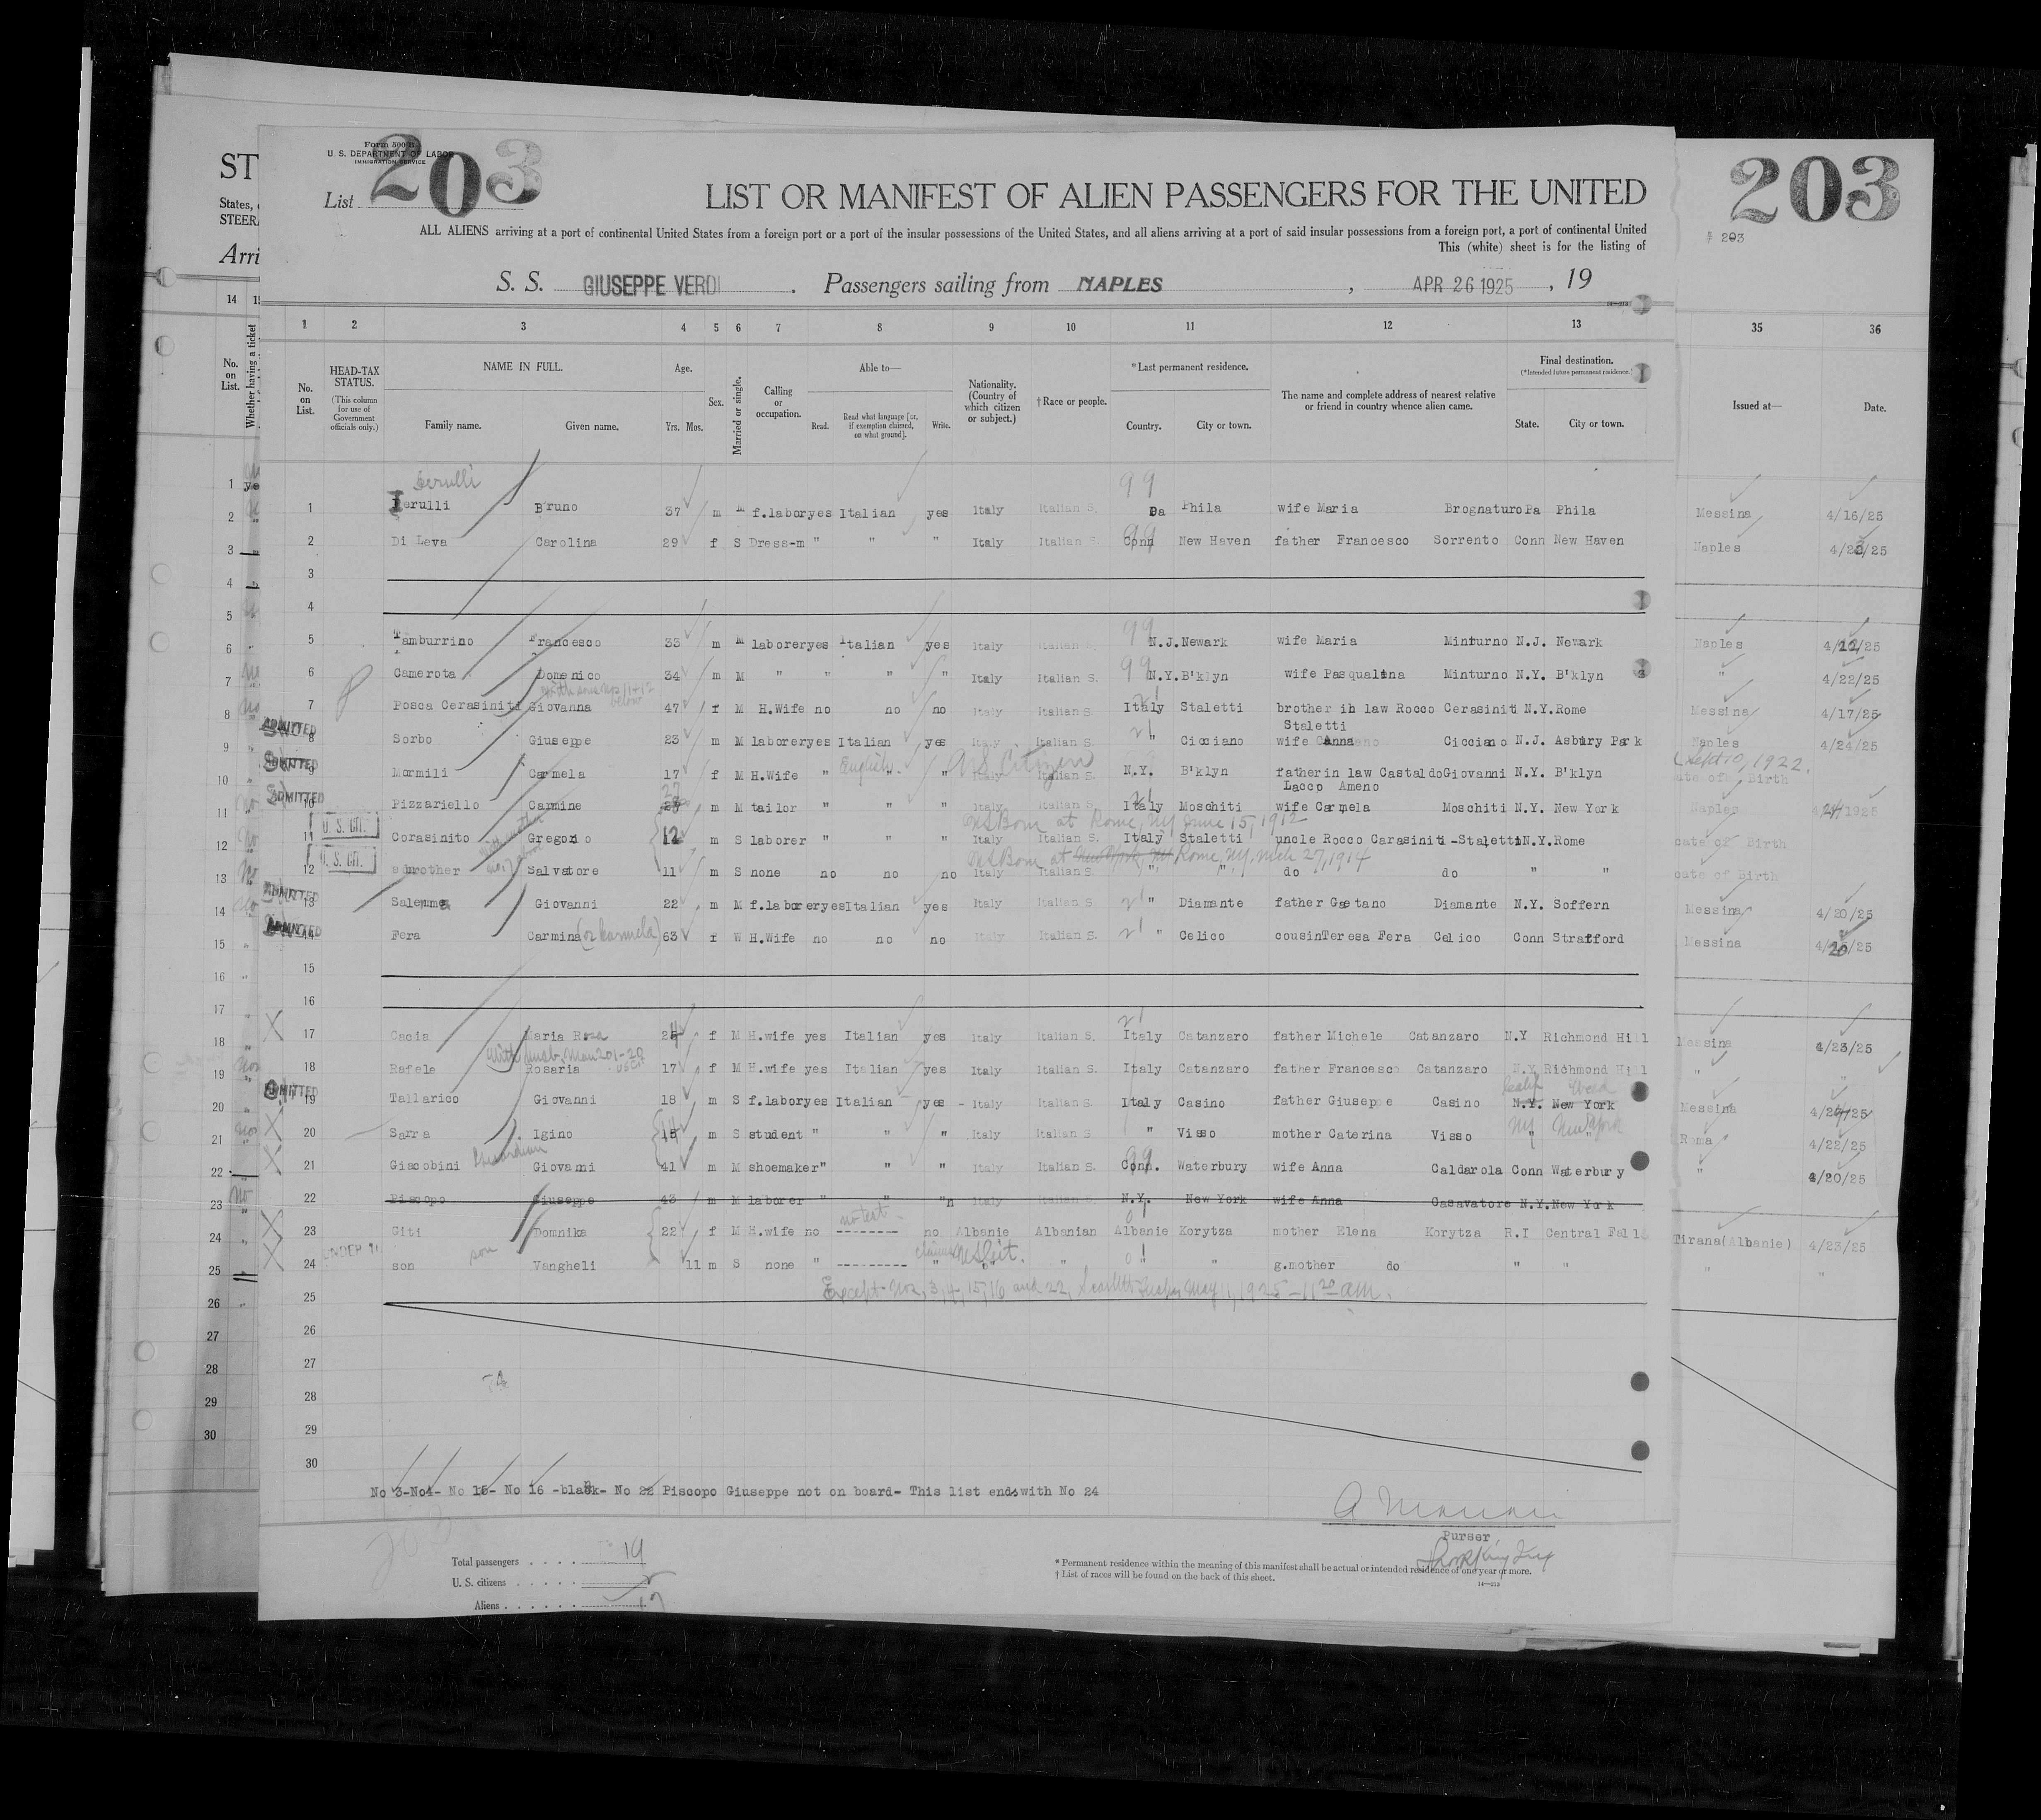 Form 500
U. S. DEPARTMENT OF LABOR
IMMIGRATION SERVICE
List 203
203
203
LIST OR MANIFEST OF ALIEN PASSENGERS FOR THE UNITED
ALL ALIENS arriving at a port of continental United States from a foreign port or a port of the insular possessions of the United States, and all aliens arriving at a port of said insular possessions from a foreign port, a port of continental United
This (white) sheet is for the listing of
ST
States,
STEER
Arri
S. S. GIUSEPPE VERDI. Passengers sailing from NAPLES, APR 26 1925, 19
14 1 2 3 4 5 6 7 8 9 10 11 12 13 35 36
No. on List. Whether having a ticket
No. on List. HEAD-TAX STATUS. (This column for use of Government officials only.) NAME IN FULL. Family name. Given name. Age. Yrs. Mos. Sex. Married or single. Calling or occupation. Able to— Read. Read what language [or, if exemption claimed, on what ground]. Write. Nationality. (Country of which citizen or subject.) † Race or people. * Last permanent residence. Country. City or town. The name and complete address of nearest relative or friend in country whence alien came. Final destination. (* Intended future permanent residence.) State. City or town. Issued at— Date.
1 erulli Bruno 37 m M f.labor yes Italian yes Italy Italian S. 99 Pa Phila wife Maria Brognaturo Pa Phila Messina 4/16/25
2 Di Leva Carolina 29 f S Dress-m " " " Italy Italian S. 99 Conn New Haven father Francesco Sorrento Conn New Haven Naples 4/23/25
3
4
5 Tamburrino Francesco 33 m M laborer yes Italian yes Italy Italian S. 99 N.J. Newark wife Maria Minturno N.J. Newark Naples 4/22/25
6 Camerota Domenico 34 m M " " " " Italy Italian S. 99 N.Y. B'klyn wife Pasqualina Minturno N.Y. B'klyn " 4/22/25
with sons Nos 11+12 below
7 Posca Cerasiniti Giovanna 47 f M H.Wife no no no Italy Italian S. 21 Italy Staletti brother ih law Rocco Cerasiniti N.Y. Rome Messina 4/17/25
Staletti
ADMITTED 8 Sorbo Giuseppe 23 m M laborer yes Italian yes Italy Italian S. 21 " Cicciano wife Anna Cicciano N.J. Asbury Park Naples 4/24/25
English U.S. Citizen Sept 10, 1922
ADMITTED 9 Mormili Carmela 17 f M H.Wife " " " Italy Italian S. N.Y. B'klyn father in law Castaldo Giovanni N.Y. B'klyn ate of Birth
Lacco Ameno
ADMITTED 10 Pizzariello Carmine m M tailor " " " Italy Italian S. 21 Italy Moschiti wife Carmela Moschiti N.Y. New York Naples 4/24/1925
US Born at Rome, NY June 15, 1912
U. S. CIT. 11 Corasinito Gregorio 12 m S laborer " " " Italy Italian S. Italy Staletti uncle Rocco Carasiniti -Staletti N.Y. Rome cate of Birth
US Born at New York, NY Rome, NY, Mch 27, 1914
U. S. CIT. 12 brother Salvatore 11 m S none no no no Italy Italian S. " " do do " " cate of Birth
ADMITTED 13 Salemme Giovanni 22 m M f.laborer yes Italian yes Italy Italian S. 21 " Diamante father Gaetano Diamante N.Y. Soffern Messina 4/20/25
ADMITTED 14 Fera Carmina (or Carmela) 63 f W H.Wife no no no Italy Italian S. 21 " Celico cousin Teresa Fera Celico Conn Strafford Messina 4/20/25
15
16
17 Cacia Maria Rosa 24 f M H.wife yes Italian yes Italy Italian S. 21 Italy Catanzaro father Michele Catanzaro N.Y Richmond Hill Messina 4/23/25
With husb. Man 201-20 US Cit
18 Rafele Rosaria 17 f M H.wife yes Italian yes Italy Italian S. Italy Catanzaro father Francesco Catanzaro N.Y. Richmond Hill " "
ADMITTED 19 Tallarico Giovanni 18 m S f.labor yes Italian yes Italy Italian S. Italy Casino father Giuseppe Casino N.Y. New York Messina 4/24/25
20 Sarra Igino m S student " " " Italy Italian S. " Visso mother Caterina Visso NY New York Roma 4/22/25
21 Giacobini Giovanni 41 m M shoemaker " " " Italy Italian S. 99 Conn. Waterbury wife Anna Caldarola Conn Waterbury " 4/20/25
22 Piscopo Giuseppe 43 m M laborer " " "n Italy Italian S. N.Y. New York wife Anna Casavatore N.Y. New York
no test
23 Giti Domnika 22 f M H.wife no -------- no Albanie Albanian Albanie Korytza mother Elena Korytza R.I Central Falls Tirana(Albanie) 4/23/25
UNDER 16 son claims US Cit.
24 son Vangheli 11 m S none " --------- " " " " " g.mother do " " " "
Except Nos. 3, 4, 15, 16 and 22, May 11, 1925 - 11 20 am.
25
26
27
28
29
30
No 3-No4- No 15- No 16 -blank- No 22 Piscopo Giuseppe not on board- This list ends with No 24
Purser
Total passengers . . . . 19
U. S. citizens . . . . . 2
Aliens . . . . . . 17
* Permanent residence within the meaning of this manifest shall be actual or intended residence of one year or more.
† List of races will be found on the back of this sheet.